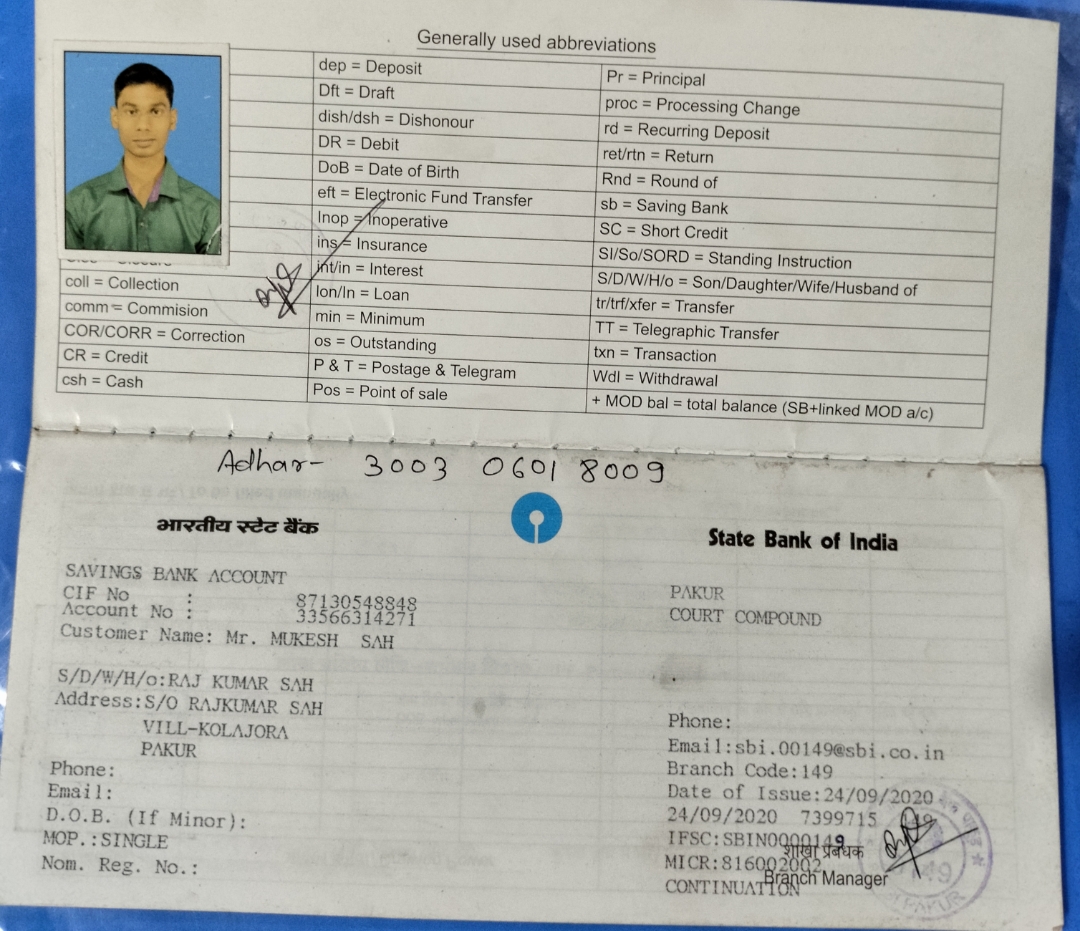 Generally used abbreviations
dep = Deposit
Dft = Draft
dish/dsh = Dishonour
DR = Debit
DoB = Date of Birth
eft = Electronic Fund Transfer
Inop = Inoperative
ins = Insurance
int/in = Interest
lon/ln = Loan
min = Minimum
os = Outstanding
P & T = Postage & Telegram
Pos = Point of sale
Pr = Principal
proc = Processing Change
rd = Recurring Deposit
ret/rtn = Return
Rnd = Round of
sb = Saving Bank
SC = Short Credit
SI/So/SORD = Standing Instruction
S/D/W/H/o = Son/Daughter/Wife/Husband of
tr/trf/xfer = Transfer
TT = Telegraphic Transfer
txn = Transaction
Wdl = Withdrawal
+ MOD bal = total balance (SB+linked MOD a/c)
coll = Collection
comm = Commision
COR/CORR = Correction
CR = Credit
csh = Cash
Adhar- 3003 0601 8009
भारतीय स्टेट बैंक
State Bank of India
SAVINGS BANK ACCOUNT
CIF No : 87130548848
Account No : 33566314271
Customer Name: Mr. MUKESH SAH
S/D/W/H/o:RAJ KUMAR SAH
Address:S/O RAJKUMAR SAH
VILL-KOLAJORA
PAKUR
Phone:
Email:
D.O.B. (If Minor):
MOP.:SINGLE
Nom. Reg. No.:
PAKUR
COURT COMPOUND
Phone:
Email:sbi.00149@sbi.co.in
Branch Code:149
Date of Issue:24/09/2020
24/09/2020 7399715
IFSC:SBIN0000149
शाखा प्रबंधक
MICR:816002002
Branch Manager
CONTINUATION
PAKUR